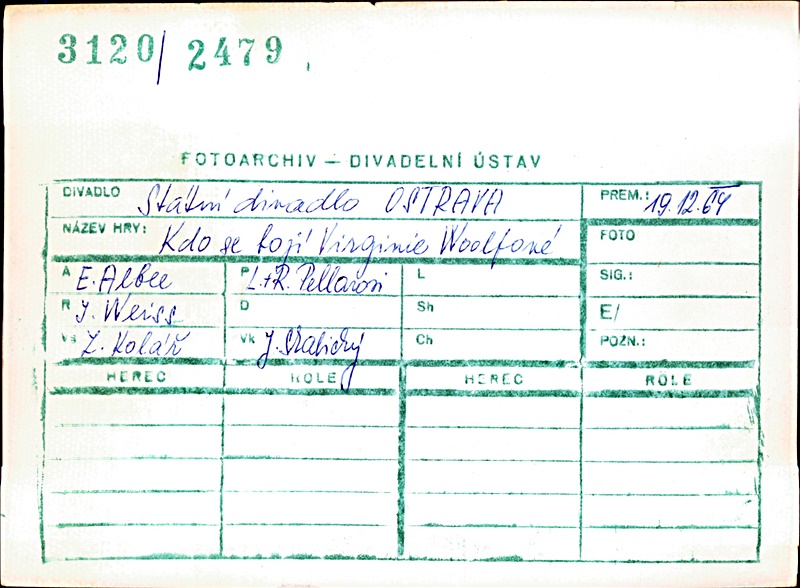 3120/2479
FOTOARCHIV – DIVADELNÍ ÚSTAV
DIVADLO Státní divadlo OSTRAVA PREM.: 19.12.64
NÁZEV HRY: Kdo se bojí Virginie Woolfové FOTO
A E. Albee P L.+R. Pellarovi L SIG.:
R J. Weiss D Sh E/
Vs Z. Kolář Vk J. Skalický Ch POZN.:
HEREC ROLE HEREC ROLE